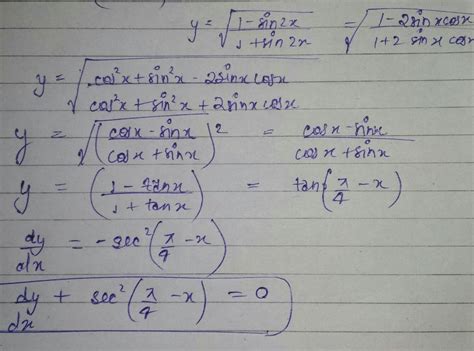 y = √((1 - sin2x)/(1 + sin2x)) = √((1 - 2sinx cosx)/(1 + 2 sinx cosx))
y = √((cos²x + sin²x - 2sinx cosx)/(cos²x + sin²x + 2sinx cosx))
y = √(((cosx - sinx)/(cosx + sinx))²) = (cosx - sinx)/(cosx + sinx)
y = ((1 - tanx)/(1 + tanx)) = tan(π/4 - x)
dy/dx = - sec²(π/4 - x)
dy/dx + sec²(π/4 - x) = 0